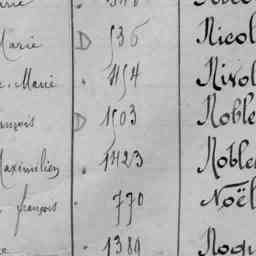 Marie D 536 Nicol
e. Marie . 1154 Nivol
ançois D 1503 Noble
Maximilien . 1423 Noble
. françois . 770 Noël
. 1389 Nogu